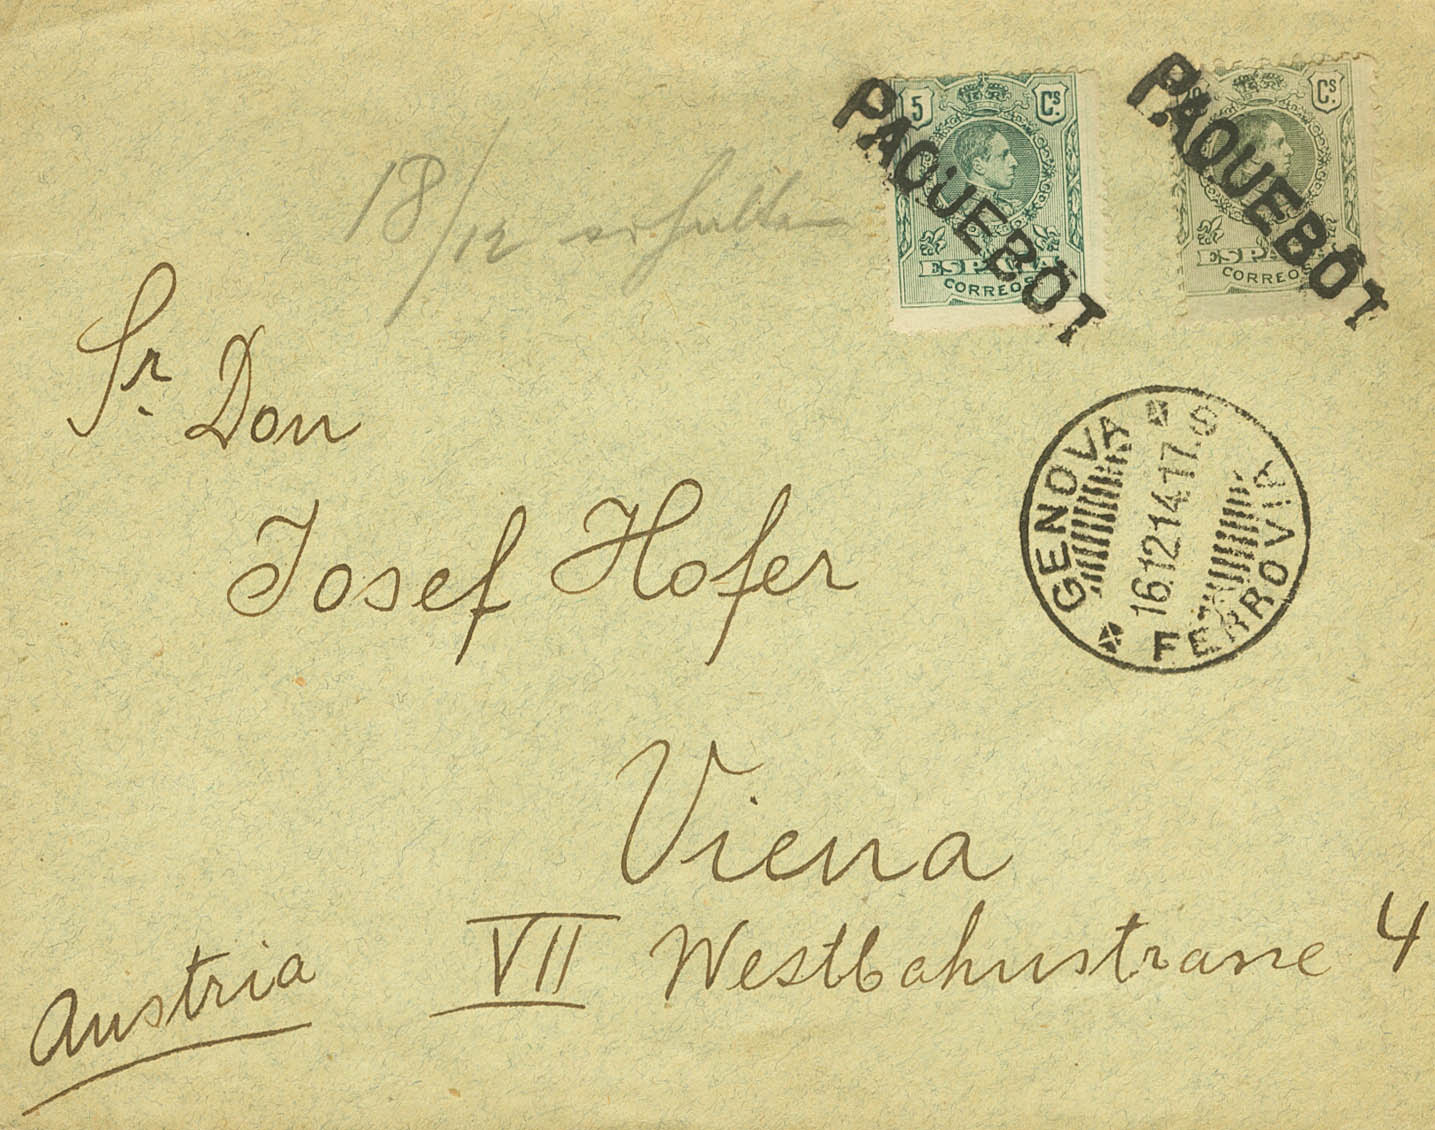 PAQUEBOT
PAQUEBOT
5 Cs.
Cs.
ESPAÑA
CORREOS
ESPAÑA
CORREOS
18/12 erhalten
Sr. Don
Josef Hofer
GENOVA FERROVIA
16.12.14.17.S
Viena
VII Westbahnstrasse 4
Austria